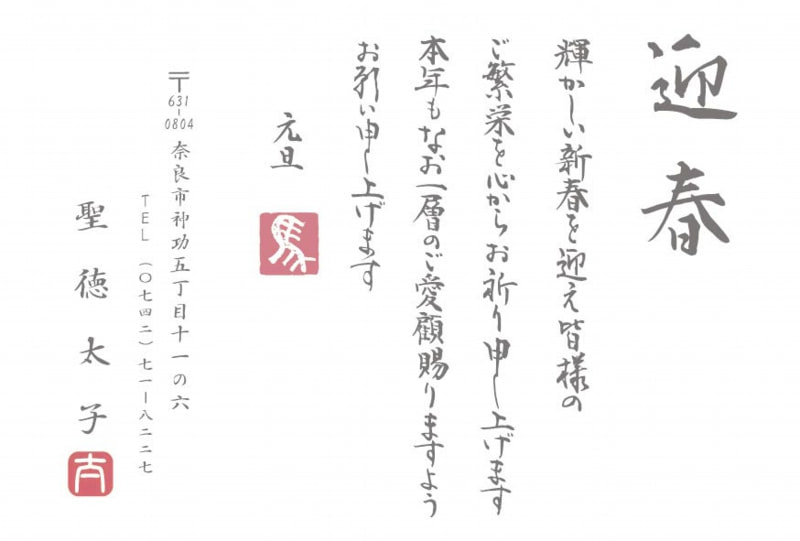 迎春
輝かしい新春を迎え皆様の
ご繁栄を心からお祈り申し上げます
本年もなお一層のご愛顧賜りますよう
お願い申し上げます
元旦
馬
〒631-0804
奈良市神功五丁目十一の六
TEL（〇七四二）七一ー八二二七
聖徳太子